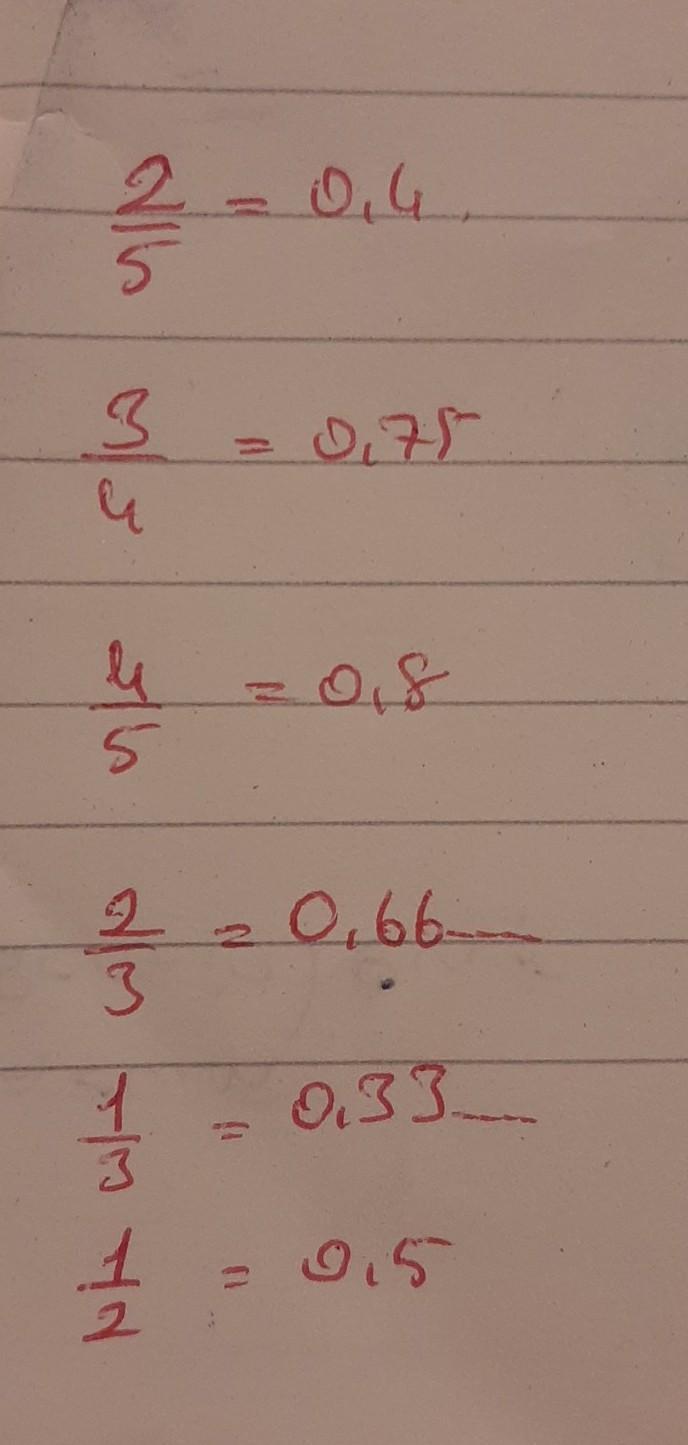 2/5 = 0,4
3/4 = 0,75
4/5 = 0,8
2/3 = 0,66...
1/3 = 0,33...
1/2 = 0,5